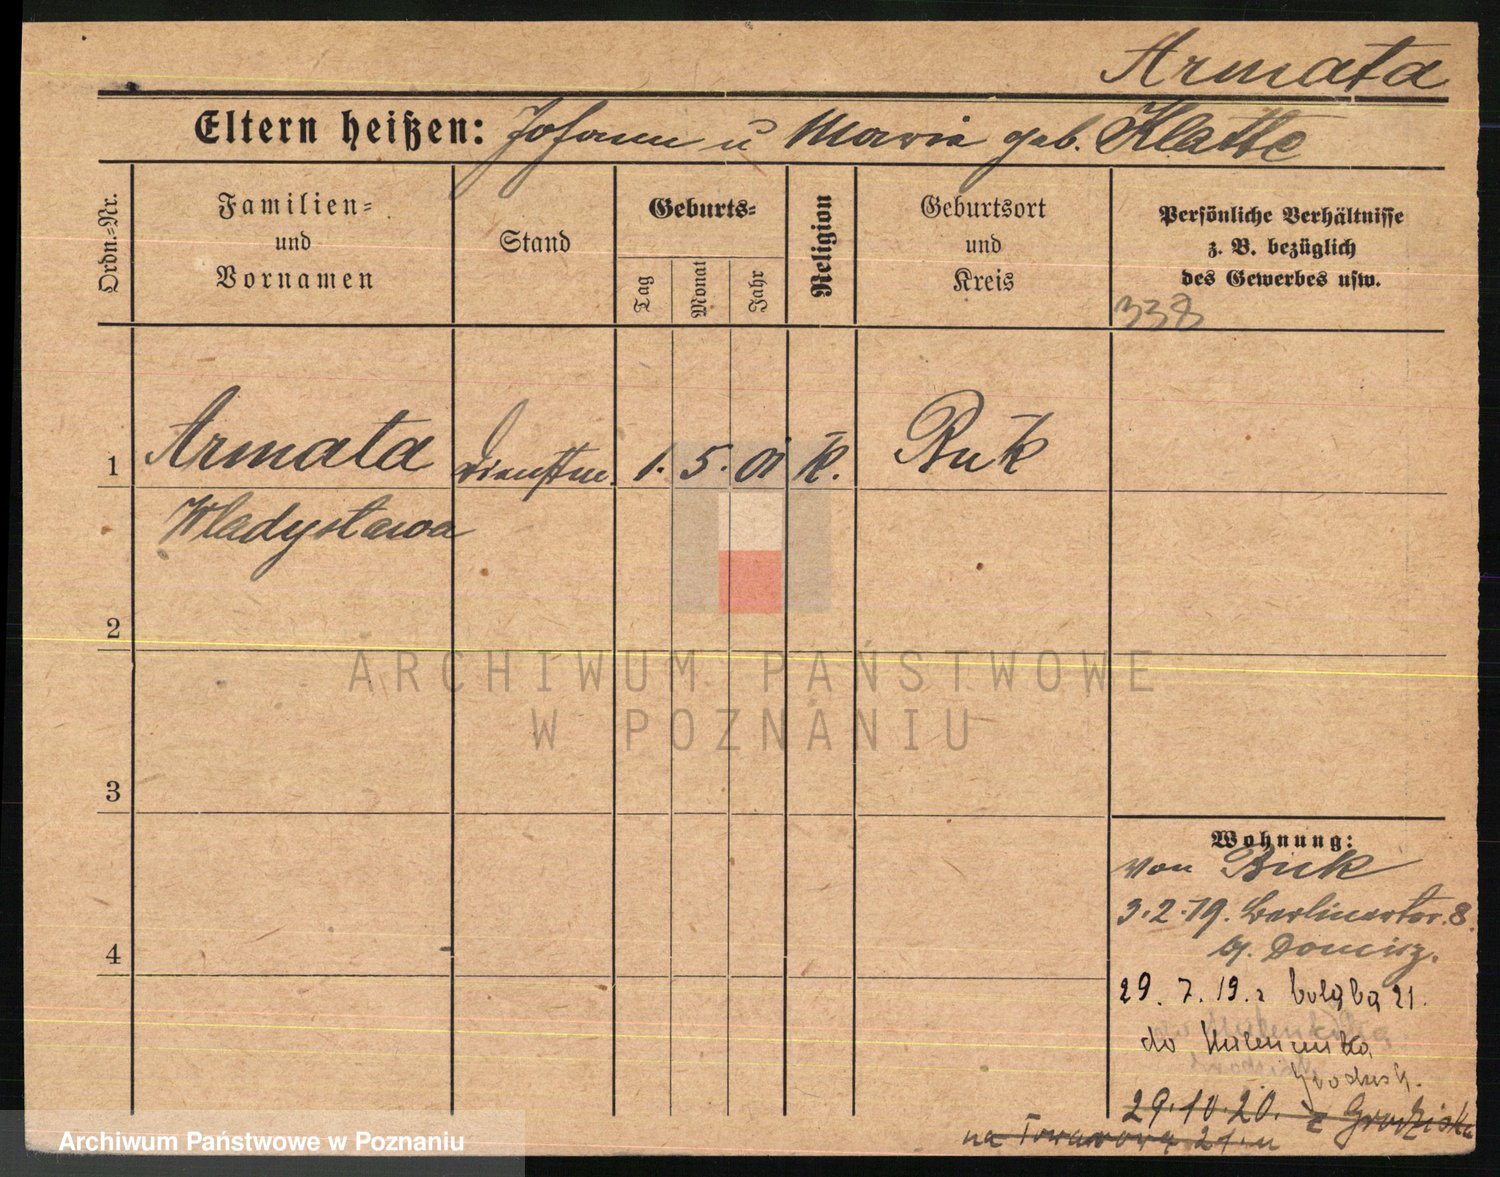 Armata
Eltern heißen: Johann u Maria geb. Klatte
Ordn.-Nr.
Familien-
und
Vornamen
Stand
Geburts-
Tag
Monat
Jahr
Religion
Geburtsort
und
Kreis
Persönliche Verhältnisse
z. B. bezüglich
des Gewerbes usw.
338
1 Armata Dienstm. 1. 5. 01 k. Buk
Wladystawa
2
ARCHIWUM PAŃSTWOWE
W POZNANIU
3
Wohnung:
von Buk
3.2.19. Berlinerstr. 8.
4
29. 7. 19.
do
29.10.20. z Grodziska
na Towarową 21.
Archiwum Państwowe w Poznaniu